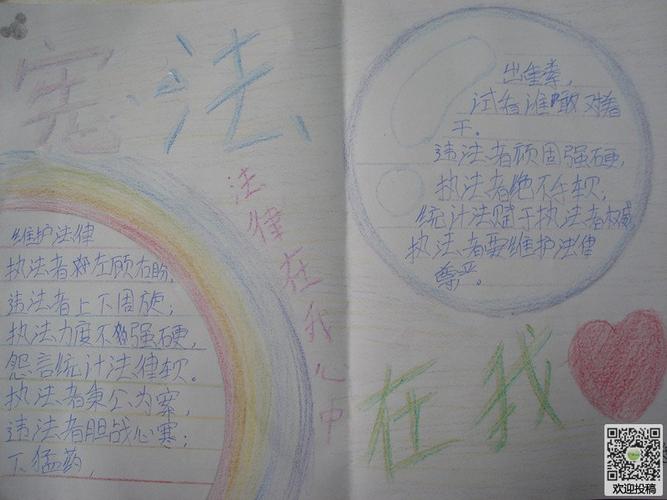 宪法
法律在我心中
维护法律
执法者左顾右盼,
违法者上下周旋;
执法力度不够强硬,
怨言统计法律软。
执法者秉公办案,
违法者胆战心寒;
下猛药,
出重拳,
试看谁敢对着
干。
违法者顽固强硬,
执法者绝不手软,
统计法赋于执法者权威
执法者要维护法律
尊严。
在我
欢迎投稿